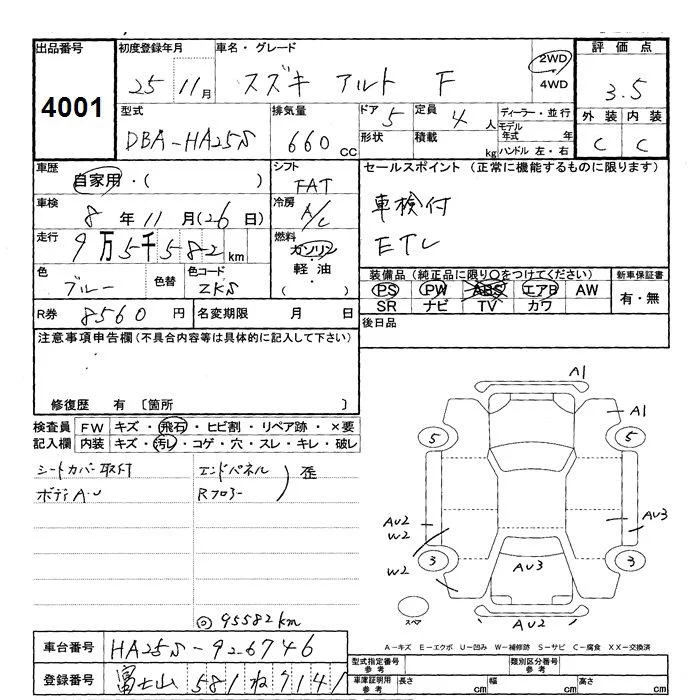 出品番号 初度登録年月 車名・グレード 評価点
4001 25 11月 スズキ アルト F 2WD 4WD 3.5
型式 排気量 ドア 5 定員 4人 ディーラー・並行 外装 内装
DBA-HA25S 660cc 形状 積載 kg モデル年式 年 C C
ハンドル 左・右
車歴 シフト セールスポイント (正常に機能するものに限ります)
自家用・( ) FAT 車検付
車検 8年11月(26日) 冷房 A/C ETC
走行 9万5千582km 燃料 ガソリン
軽油
( )
色 ブルー 色替 色コード ZKS
装備品 (純正品に限り○をつけてください) 新車保証書
PS PW ABS エアB AW 有・無
SR ナビ TV カワ
R券 8560円 名変期限 月 日
後日品
注意事項申告欄 (不具合内容等は具体的に記入して下さい)
修復歴 有 〔箇所 〕
検査員 FW キズ・飛石・ヒビ割・リペア跡・×要
記入欄 内装 キズ・汚レ・コゲ・穴・スレ・キレ・破レ
シートカバー取付 エンドパネル 歪
ボディA・U Rフロアー
A1
A1
5 5
AU2 AU3
W2
3 3
W2 AU3
スペア AU2
◎95582km
A-キズ E-エクボ U-凹み W-補修跡 S-サビ C-腐食 XX-交換済
車台番号 HA25S-926746
型式指定番号 参考 類別区分番号 参考
登録番号 富士山 581 ね 7141
車庫証明用 参考 長さ cm 幅 cm 高さ cm